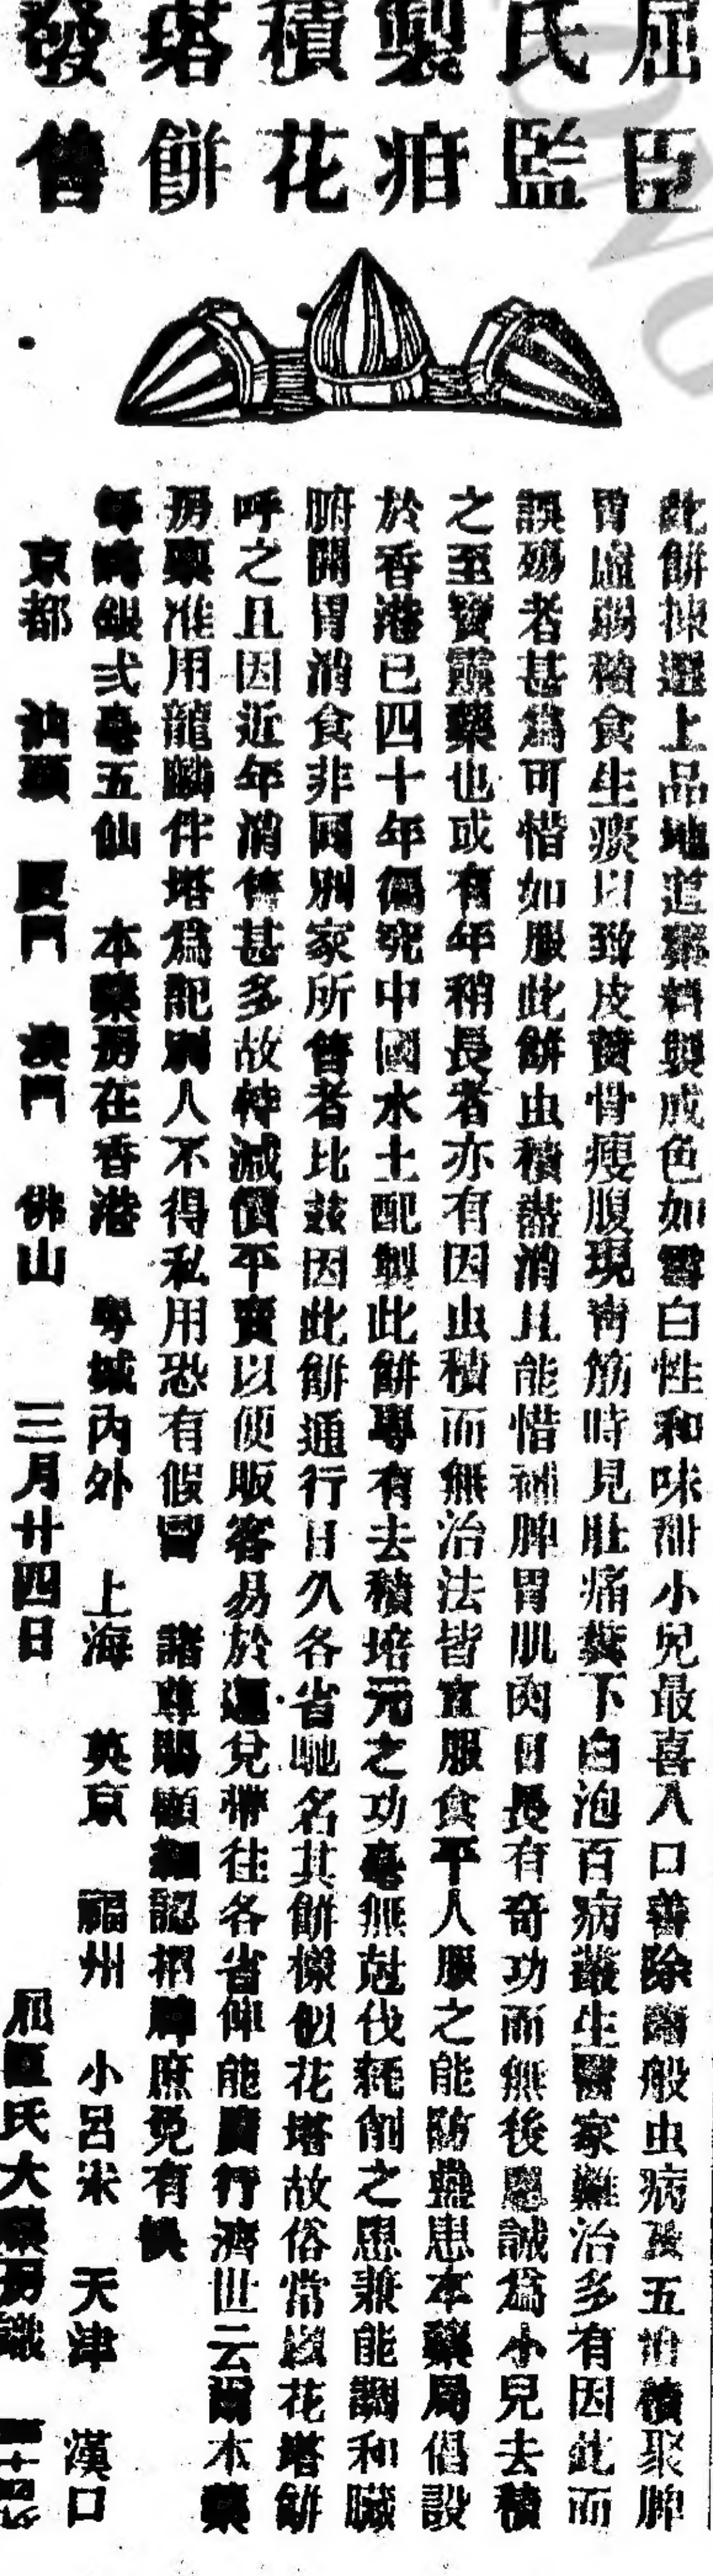 屈臣
氏監
製疳
積花
塔餅
發售
此餅揀選上品地道藥料製成色如雪白性和味甜小兒最喜入口善除諸般虫病及五疳積聚脾
胃虛弱積食生痰以致皮黃骨瘦腹現青筋時見肚痛糞下白泡百病叢生醫家難治多有因此而
誤殤者甚為可惜如服此餅虫積盡消且能惜補脾胃肌肉日長有奇功而無後患誠為小兒去積
之至寶靈藥也或有年稍長者亦有因虫積而無治法皆宜服食平人服之能防蠱患本藥局倡設
於香港已四十年偏究中國水土配製此餅專有去積培元之功毫無尅伐耗削之患兼能調和臟
腑開胃消食非同別家所售者比茲因此餅通行日久各省馳名其餅樣似花塔故俗常以花塔餅
呼之且因近年消售甚多故特減價平賣以便販客易於運兌帶往各省俾能廣行濟世云爾本藥
房稟准用龍麟伴塔為記別人不得私用恐有假冒 諸尊賜顧細認招牌庶免有悞
每 銀弍毫五仙 本藥房在香港 粵城內外 上海 英京 福州 小呂宋 天津 漢口
京都 汕頭 厦門 澳門 佛山 三月廿四日 屈臣氏大藥房識